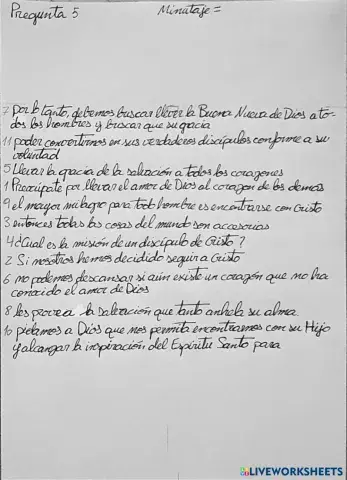 Pregunta 5 Minutaje =
7 Por lo tanto, debemos buscar llevar la Buena Nueva de Dios a to-
dos los hombres y buscar que su gracia
11 poder convertirnos en sus verdaderos discípulos conforme a su
voluntad
5 llevar la gracia de la salvación a todos los corazones
1 Preocúpate por llevar el amor de Dios al corazón de los demás
9 el mayor milagro para todo hombre es encontrarse con Cristo
3 entonces todas las cosas del mundo son accesorias
4 ¿Cual es la misión de un discípulo de Cristo?
2 Si nosotros hemos decidido seguir a Cristo
6 no podemos descansar si aún existe un corazón que no ha
conocido el amor de Dios
8 les provea la salvación que tanto anhela su alma
10 pidamos a Dios que nos permita encontrarnos con su Hijo
y alcanzar la inspiración del Espíritu Santo para
LIVEWORKSHEETS